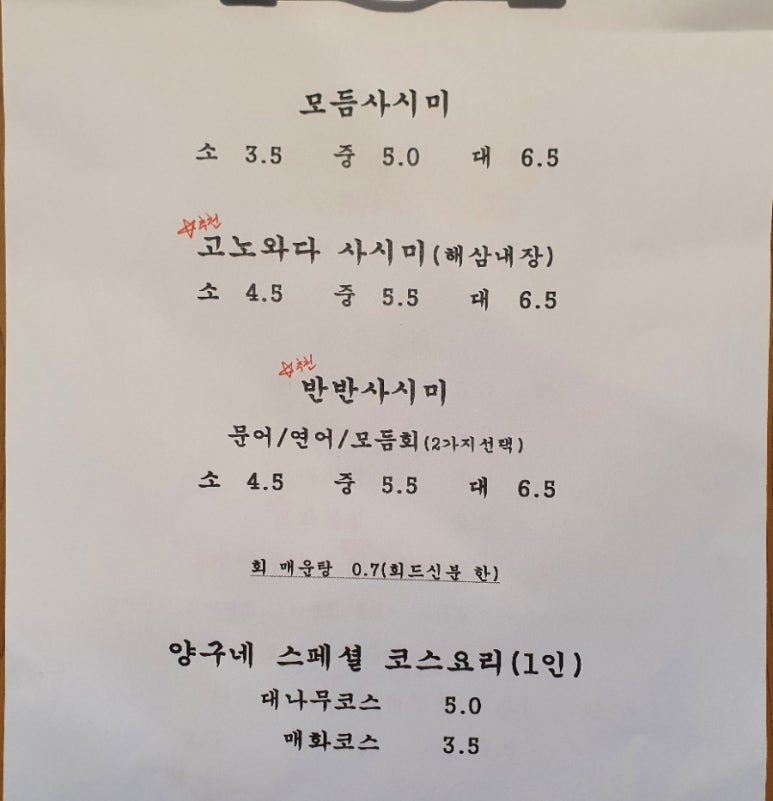 모듬사시미
소 3.5 중 5.0 대 6.5
☆추천
고노와다 사시미(해삼내장)
소 4.5 중 5.5 대 6.5
☆추천
반반사시미
문어/연어/모듬회(2가지선택)
소 4.5 중 5.5 대 6.5
회 매운탕 0.7(회드신분 한)
양구네 스페셜 코스요리(1인)
대나무코스 5.0
매화코스 3.5